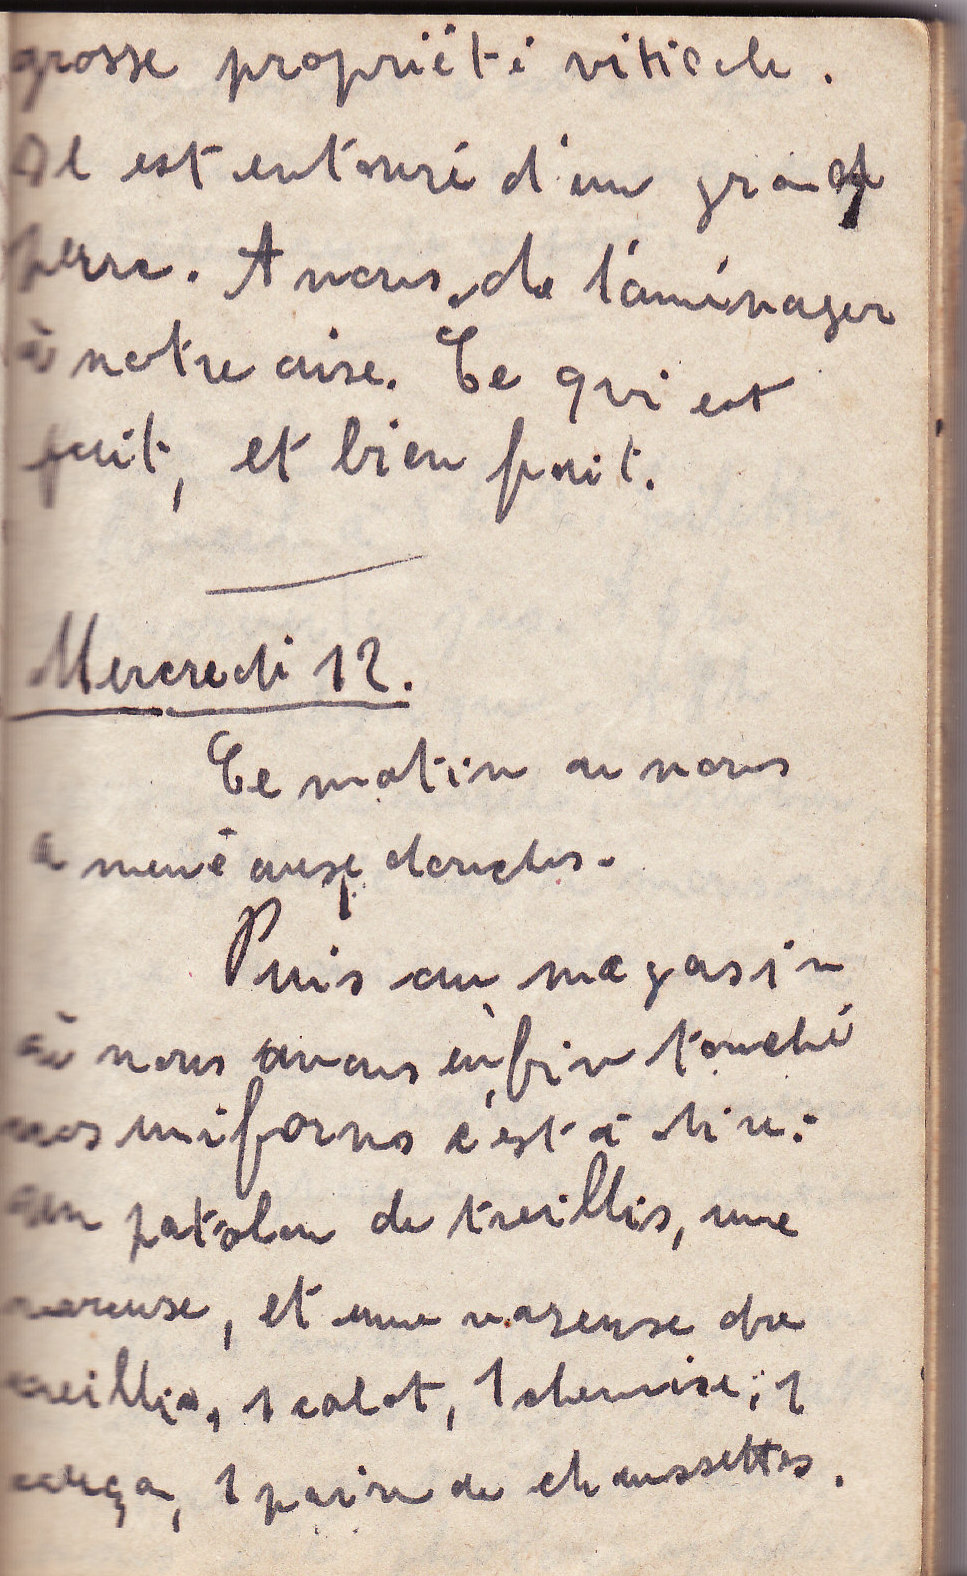 grosse propriété viticole.
Il est entouré d'un grand
parc. A nous de l'aménager
à notre aise. Ce qui est
fait, et bien fait.
Mercredi 12.
Ce matin on nous
a mené aux douches.
Puis au magasin
où nous avons enfin touché
nos uniforms c'est à dire:
un patalon de treillis, une
vareuse, et une vareuse de
treillis, 1 calot, 1 chemise, 1
caleçon, 1 paire de chaussettes.